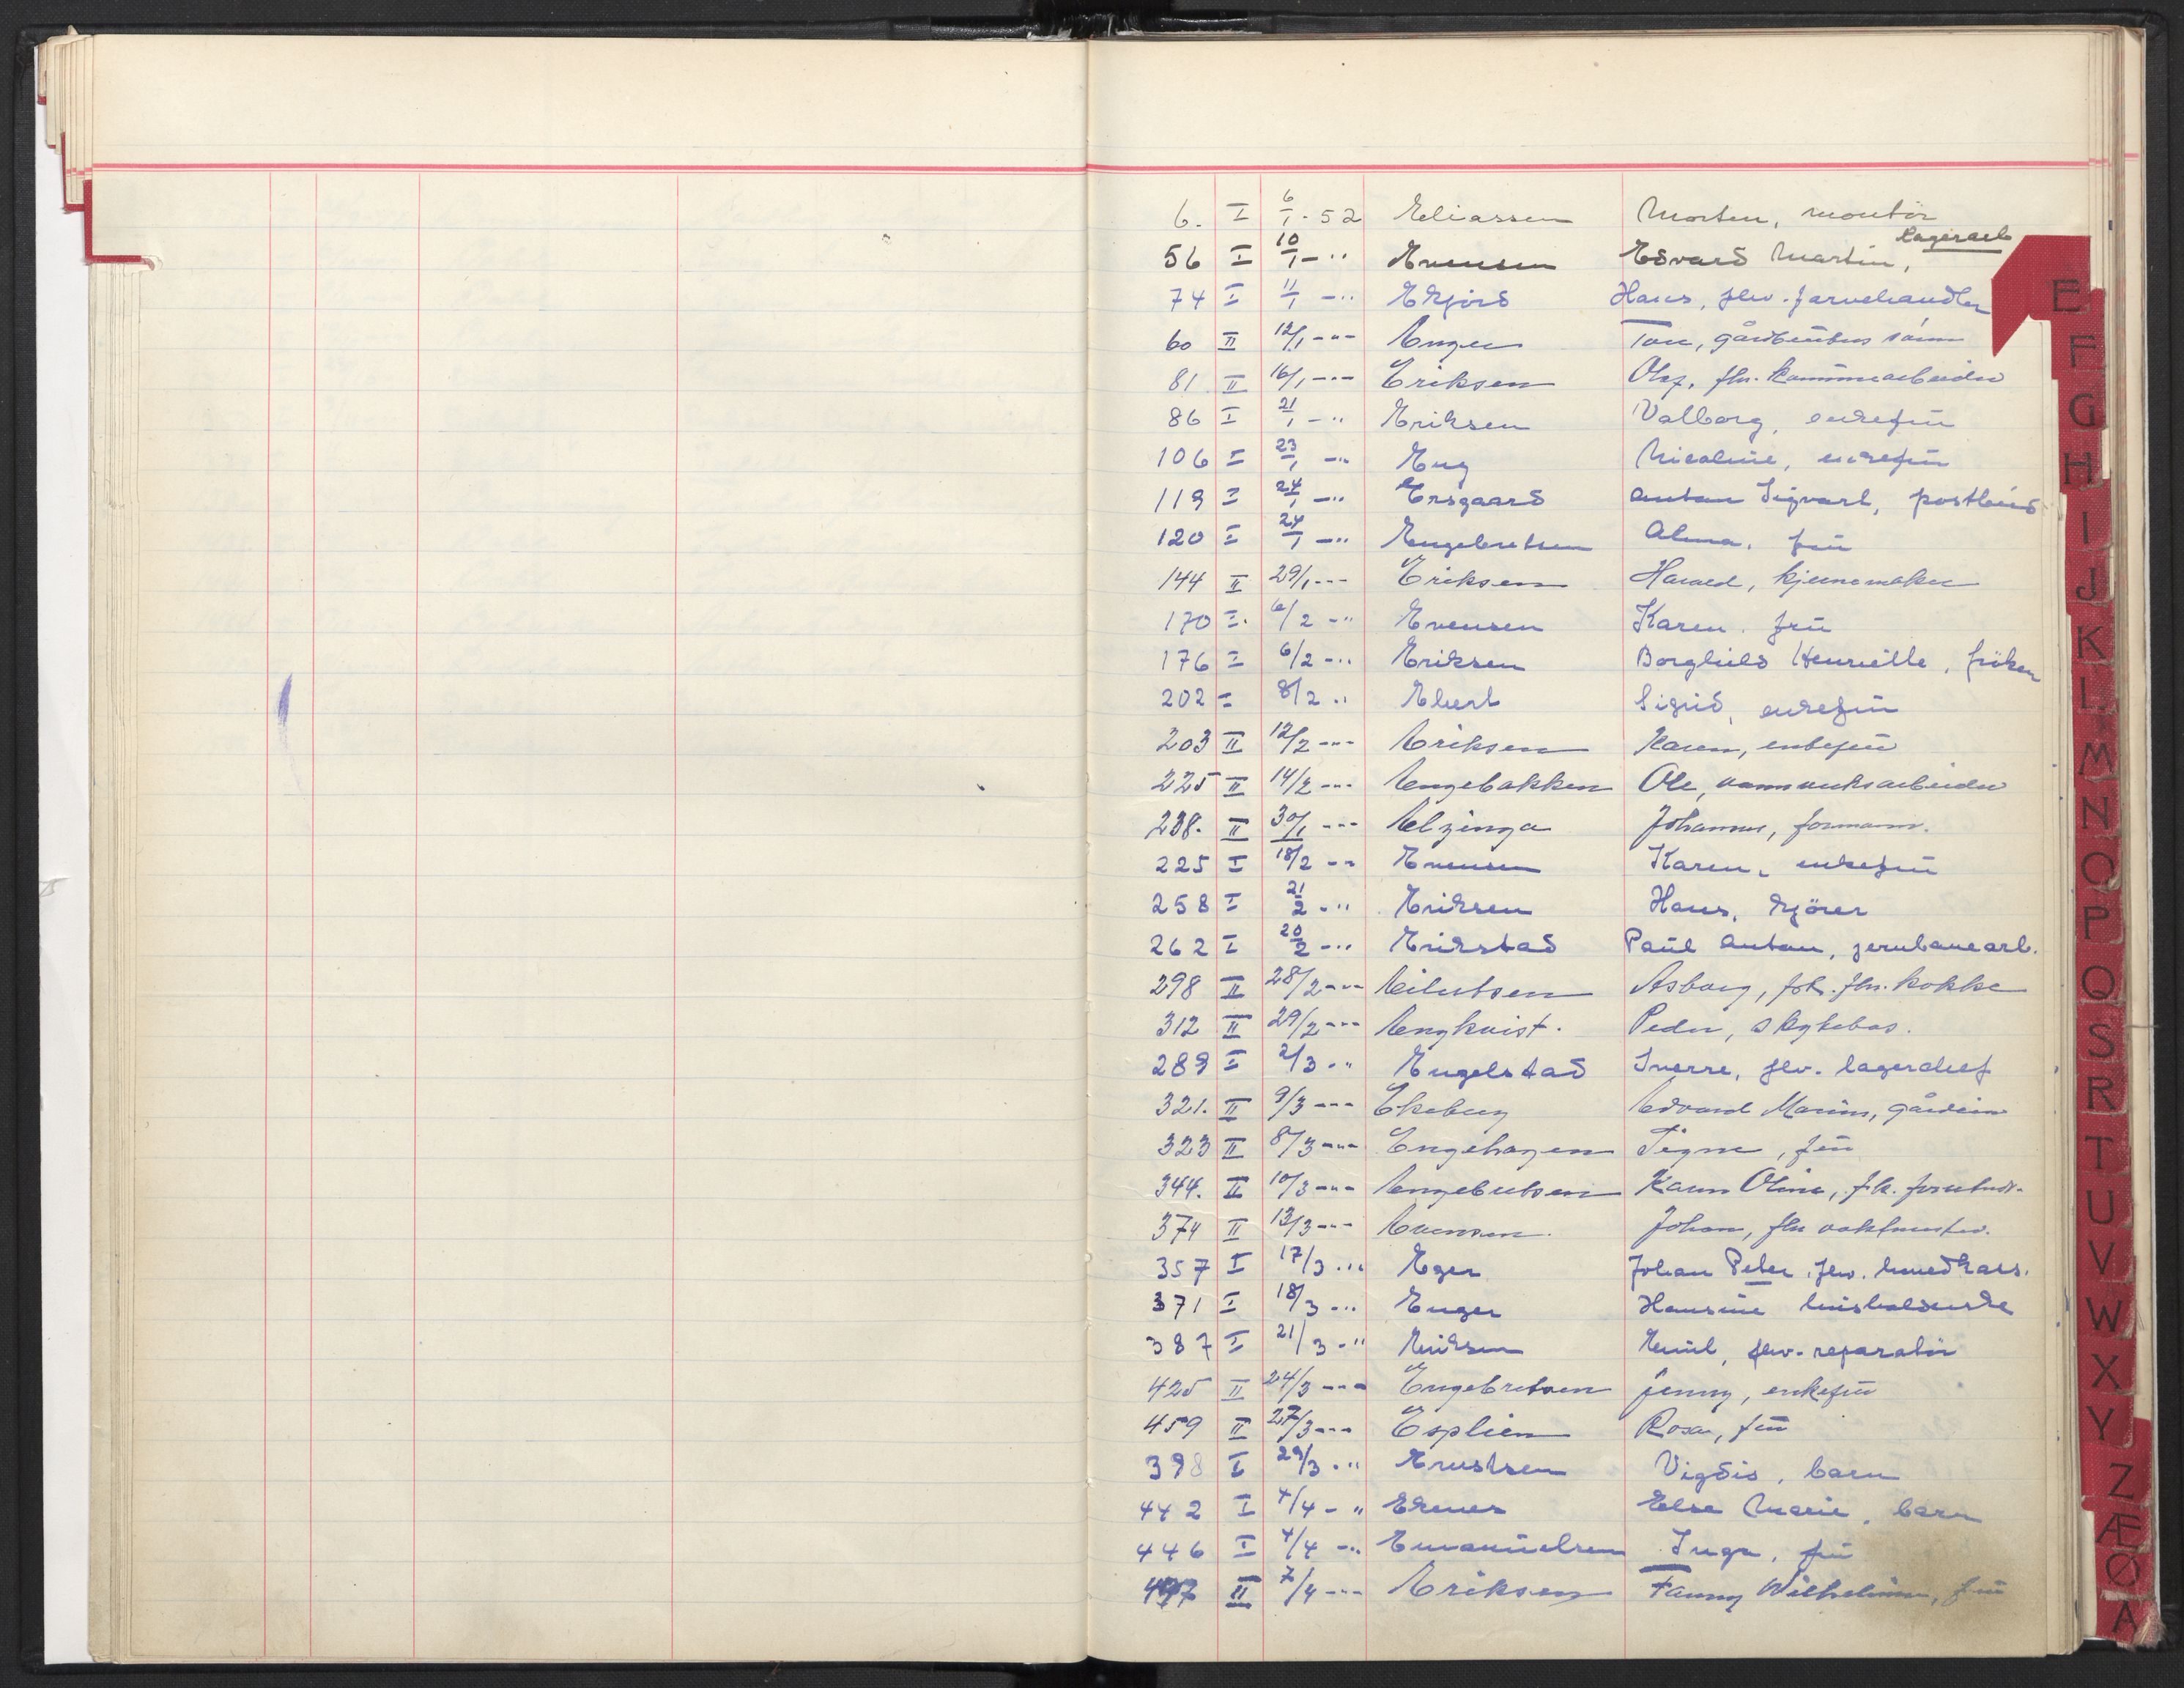 6. I 6/1 - 52 Eliassen Morten, montör
56 I 10/1 - " Evensen Edvard Martin, lagerarb
74 I 11/1 - " Ekfjord Hans, fhv. farvehandler
60 II 12/1 - " - Enger Tore, gårdbrukers sönn
81 II 16/1 - " - Eriksen Olaf, fhv. kommunearbeider
86 I 21/1 - " Eriksen Valborg, enkefrü
106 I 23/1 - " Eng Nicoline, enkefrü
119 I 24/1 - " Ersgaard Anton Sigvart, postbüd
120 I 24/1 - " Engebretsen Alma, frü
144 II 29/1 - " - Eriksen Harald, hjemmemaker
170 I. 6/2 - " Evensen Karen, frü
176 I 6/2 - " Eriksen Borghild Henriette, fröken
202 I 8/2 " Ebert Sigrid, enkefrü
203 II 12/2 - " - Eriksen Karen, enkefrü
225 II 14/2 - " - Engebakken Ole, vannverksarbeider
238. II 30/1 - " - Elzinga Johannes, formann.
225 I 18/2 - " Evensen Karen, enkefrü
258 I 21/2 - " Eriksen Hans, kjörer
262 I 20/2 - " Erikstad Paül Anton, jernbanearb.
298 II 28/2 - " - Eilertsen Asborg, frk. fhv. kokke
312 II 29/2 - " - Engkvist. Peder, skytebas.
289 I 2/3 - " Engelstad Sverre, fhv. lagerchef
321. II 9/3 - " - Ekeberg Edvard Marius, gårdeier
323 II 8/3 - " - Engehagen Signe, frü
344. II 10/3 - " - Engebretsen Karen Oline, frk.
374 II 13/3 - " - Evensen. Johan, fhv vaktmester.
357 I 17/3 - " Eger Johan Peter, fhv. hovedkass.
371 I 18/3 - " Enger Hansine hüsholderske
387 I 21/3 - " Eriksen Emil, fhv. reparatör
425 II 24/3 - " - Engebretsen Jenny, enkefrü
459 II 27/3 - " - Esplien Rosa, frü
398 I 29/3 - " Ernstsen Vigdis, barn
442 I 4/4 - " Ekenes Else Marie, barn
446 I 4/4 - " Emanüelsen Inga, frü
497 II 7/4 - " - Eriksen Fanny Wilhelmine, frü
E
F
G
H
I
J
K
L
M
N
O
P
Q
S
R
T
U
V
W
X
Y
Z
Æ
Ø
A